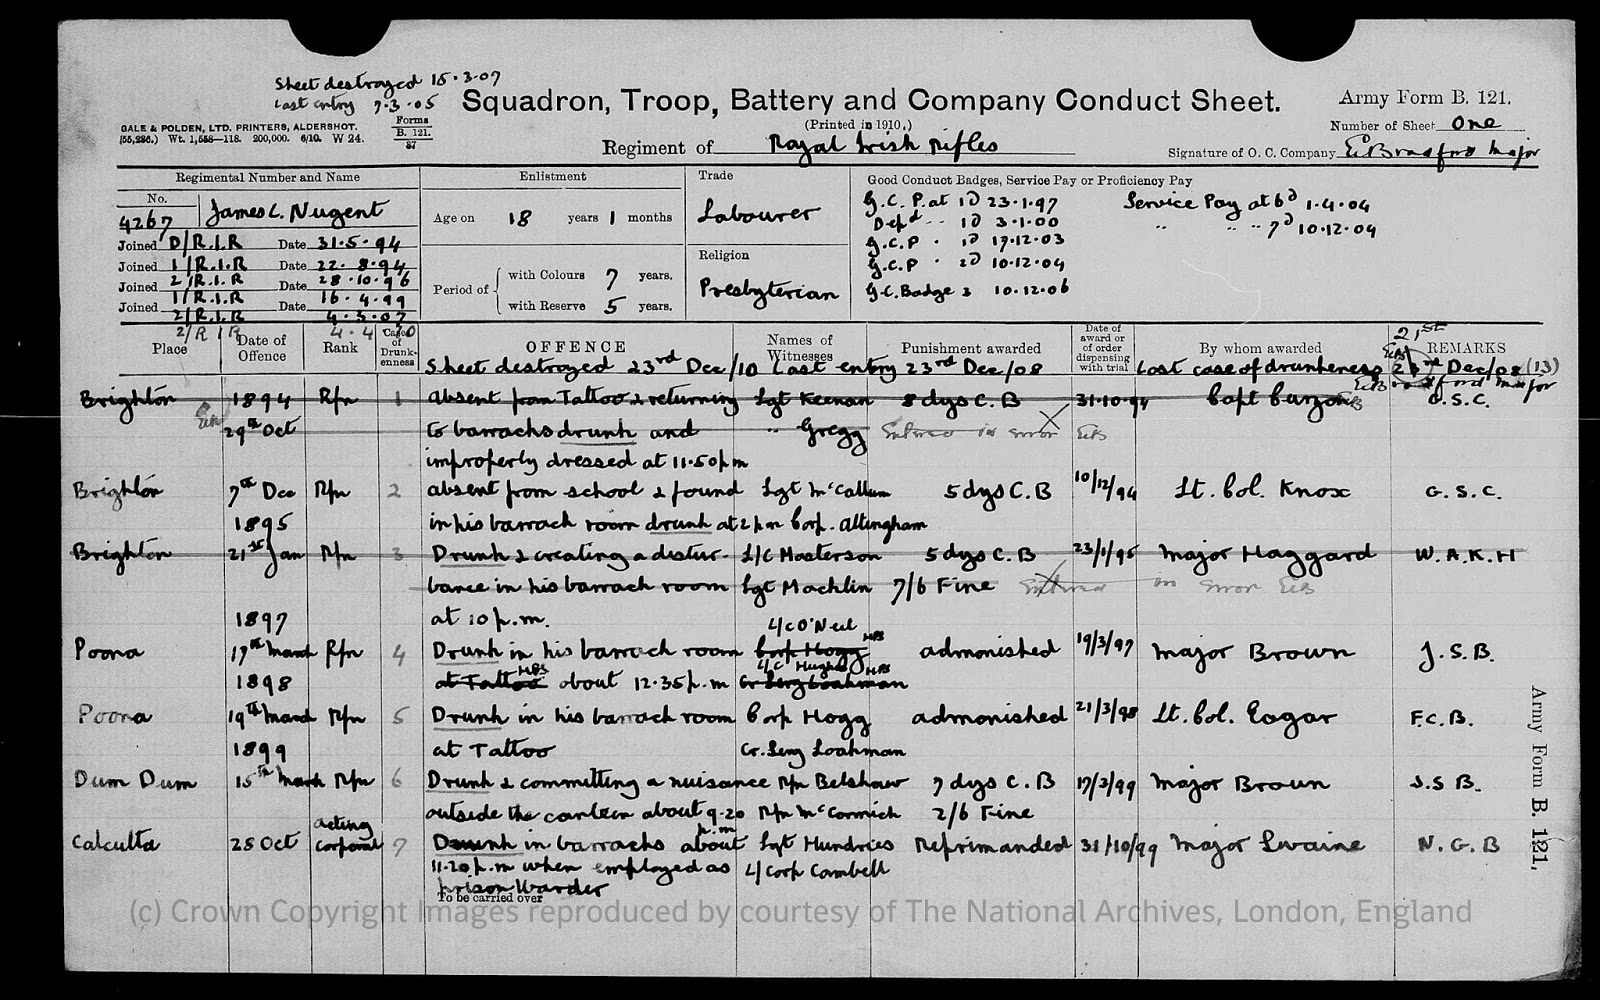 Sheet destroyed 15.3.07
Last entry 7.3.05
Squadron, Troop, Battery and Company Conduct Sheet.
Army Form B. 121.
(Printed in 1910.)
GALE & POLDEN, LTD. PRINTERS, ALDERSHOT.
(55,286.) Wt. 1,558—118. 200,000. 6/10. W 24.
Forms
B. 121.
37
Number of Sheet One
Regiment of Royal Irish Rifles
Signature of O. C. Company E. Bradford Major
Regimental Number and Name
No.
4267 James L. Nugent
Joined D/R.I.R Date 31.5.94
Joined 1/R.I.R Date 22.8.94
Joined 2/R.I.R Date 28.10.96
Joined 1/R.I.R Date 16.4.99
2/R.I.R 4.3.07
2/R I R 4.4.10
Enlistment
Age on 18 years 1 months
Period of
with Colours 7 years.
with Reserve 5 years.
Trade
Labourer
Religion
Presbyterian
Good Conduct Badges, Service Pay or Proficiency Pay
G.C.P. at 1d 23.1.97
Depd -- 1d 3.1.00
G.C.P " 1d 17.12.03
G.C.P " 2d 10.12.04
G.C. Badge 3 10.12.06
Service Pay at 6d 1.4.04
" " " 7d 10.12.04
Place
Date of Offence
Rank
Cases of Drunk-enness
OFFENCE
Names of Witnesses
Punishment awarded
Date of award or of order dispensing with trial
By whom awarded
REMARKS
Sheet destroyed 23rd Dec/10 Last entry 23rd Dec/08 Last case of drunkeness 21st Dec/08 (13)
Bradford Major
Brighton 1894 Rfn 1 absent from Tattoo & returning Sgt Keenan 8 dys C.B 31.10.94 Capt Curzon G.S.C.
29th Oct to barracks drunk and " Gregg Entered in error EB
improperly dressed at 11.50 p m
Brighton 7th Dec Rfn 2 absent from school & found Sgt McCallum 5 dys C.B 10/12/94 Lt. Col. Knox G.S.C.
1895 in his barrack room drunk at 2 p m Corp. Altingham
Brighton 21st Jan Rfn 3 Drunk & creating a distur- L/C Masterson 5 dys C.B 23/1/95 Major Haggard W.A.K.H
bance in his barrack room Sgt Macklin 7/6 Fine Entered in error EB
1897 at 10 p.m. L/C O'Neil
Poona 17th March Rfn 4 Drunk in his barrack room Corp Hogg admonished 19/3/97 Major Brown J.S.B.
L/C Hughes
1898 at Tattoo about 12.35 p.m Cr. Serg Loahman
Poona 19th March Rfn 5 Drunk in his barrack room Corp Hogg admonished 21/3/98 Lt. Col. Eagar F.C.B.
1899 at Tattoo Cr. Serg Loahman
Dum Dum 15th March Rfn 6 Drunk & committing a nuisance Rfn Belshaw 7 dys C.B 17/3/99 Major Brown J.S.B.
outside the canteen about 9.20 p.m Rfn McCormick 2/6 Fine
Calcutta 28 Oct acting corporal 7 Drunk in barracks about Sgt Hundries Reprimanded 31/10/99 Major Swaine N.G.B
11.20 p.m when employed as L/Corp Cambell
prison Warder
To be carried over
Army Form B. 121.
(c) Crown Copyright Images reproduced by courtesy of The National Archives, London, England